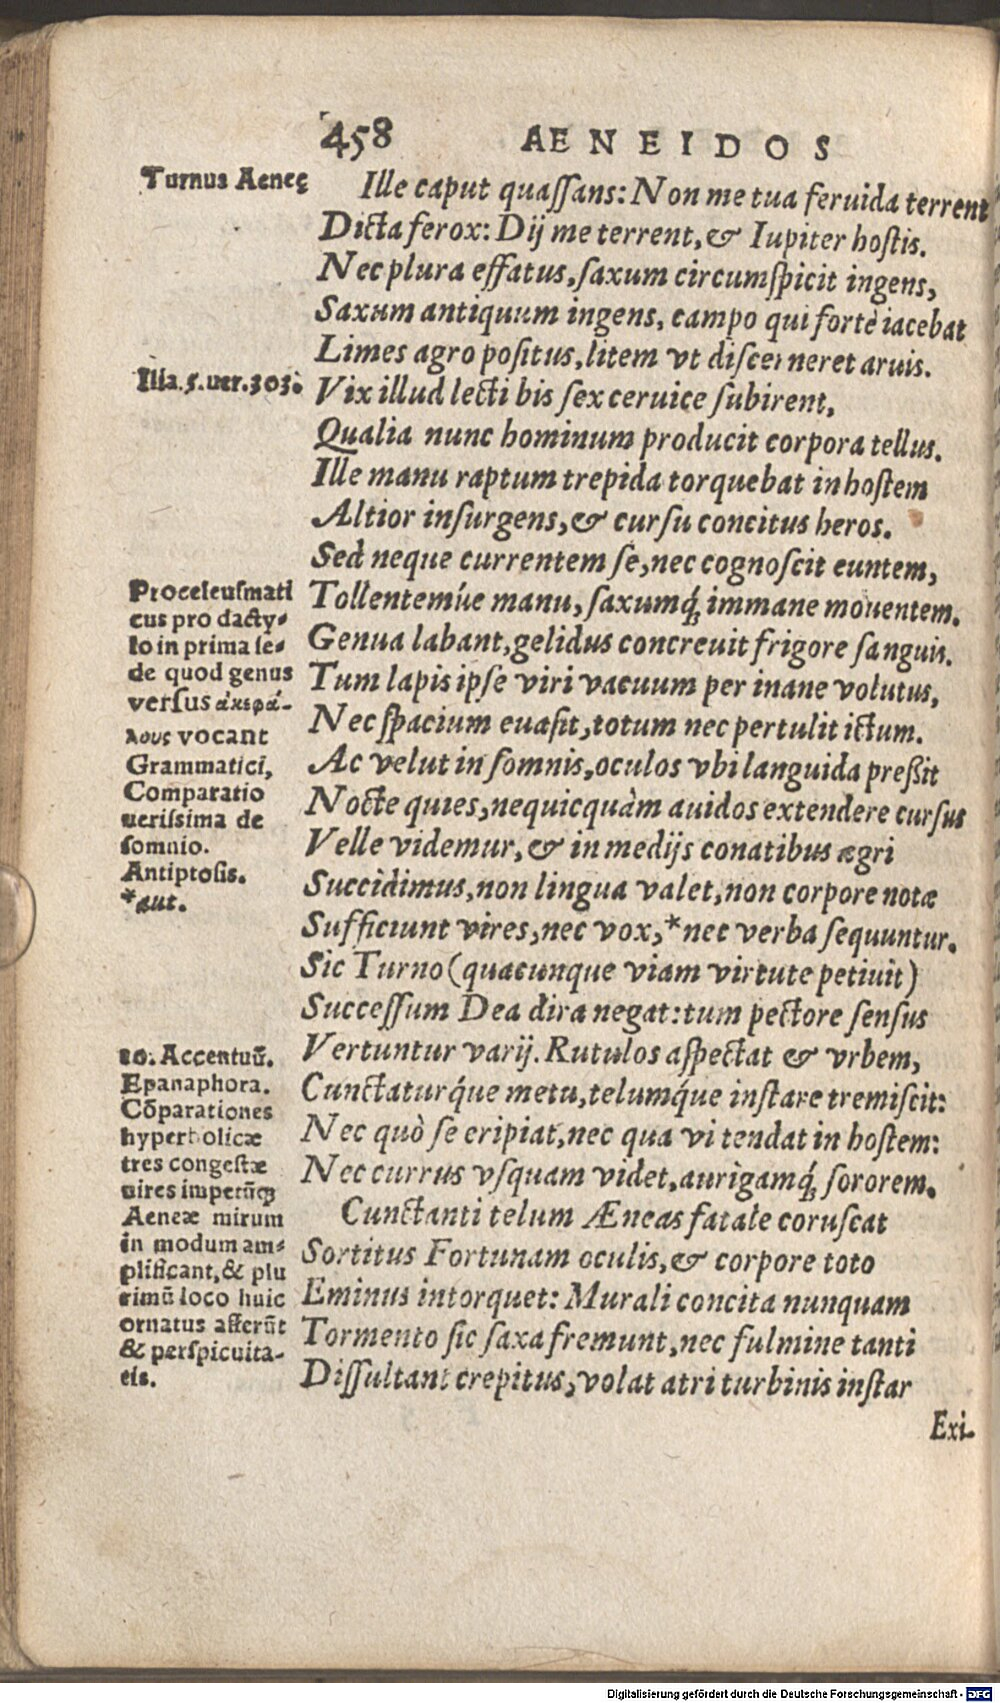 458 AENEIDOS
Turnus Aeneę
Ille caput quaſſans: Non me tua feruida terrent
Dicta ferox: Dij me terrent, & Iupiter hoſtis.
Nec plura effatus, ſaxum circumſpicit ingens,
Saxum antiquum ingens, campo qui fortè iacebat
Limes agro poſitus, litem vt diſcerneret aruis.
Ilia.5.uer.303.
Vix illud lecti bis ſex ceruice ſubirent,
Qualia nunc hominum producit corpora tellus.
Ille manu raptum trepida torquebat in hoſtem
Altior inſurgens, & curſu concitus heros.
Sed neque currentem ſe, nec cognoſcit euntem,
Tollentemúe manu, ſaxumq́; immane mouentem.
Genua labant, gelidus concreuit frigore ſanguis.
Tum lapis ipſe viri vacuum per inane volutus,
Nec ſpacium euaſit, totum nec pertulit ictum.
Ac velut in ſomnis, oculos vbi languida preßit
Nocte quies, nequicquàm auidos extendere curſus
Velle videmur, & in medijs conatibus ægri
Succidimus, non lingua valet, non corpore notæ
Sufficiunt vires, nec vox, *nec verba ſequuntur.
Proceleuſmati
cus pro dacty-
lo in prima ſe-
de quod genus
verſus ἀκεφά-
λους vocant
Grammatici,
Comparatio
ueriſsima de
ſomnio.
Antiptoſis.
*aut.
Sic Turno (quacunque viam virtute petiuit)
Succeſſum Dea dira negat: tum pectore ſenſus
Vertuntur varij. Rutulos aſpectat & vrbem,
Cunctaturq́ue metu, telumq́ue inſtare tremiſcit:
Nec quò ſe eripiat, nec qua vi tendat in hoſtem:
Nec currus vſquam videt, aurigamq́; ſororem.
Cunctanti telum Æneas fatale coruſcat
Sortitus Fortunam oculis, & corpore toto
Eminus intorquet: Murali concita nunquam
Tormento ſic ſaxa fremunt, nec fulmine tanti
Diſſultant crepitus, volat atri turbinis inſtar
10. Accentuū.
Epanaphora.
Cōparationes
hyperbolicæ
tres congeſtæ
uires impetūq;
Aeneæ mirum
in modum am-
plificant, & plu
rimū loco huic
ornatus afferūt
& perſpicuita-
tis.
Exi-
Digitalisierung gefördert durch die Deutsche Forschungsgemeinschaft - DFG